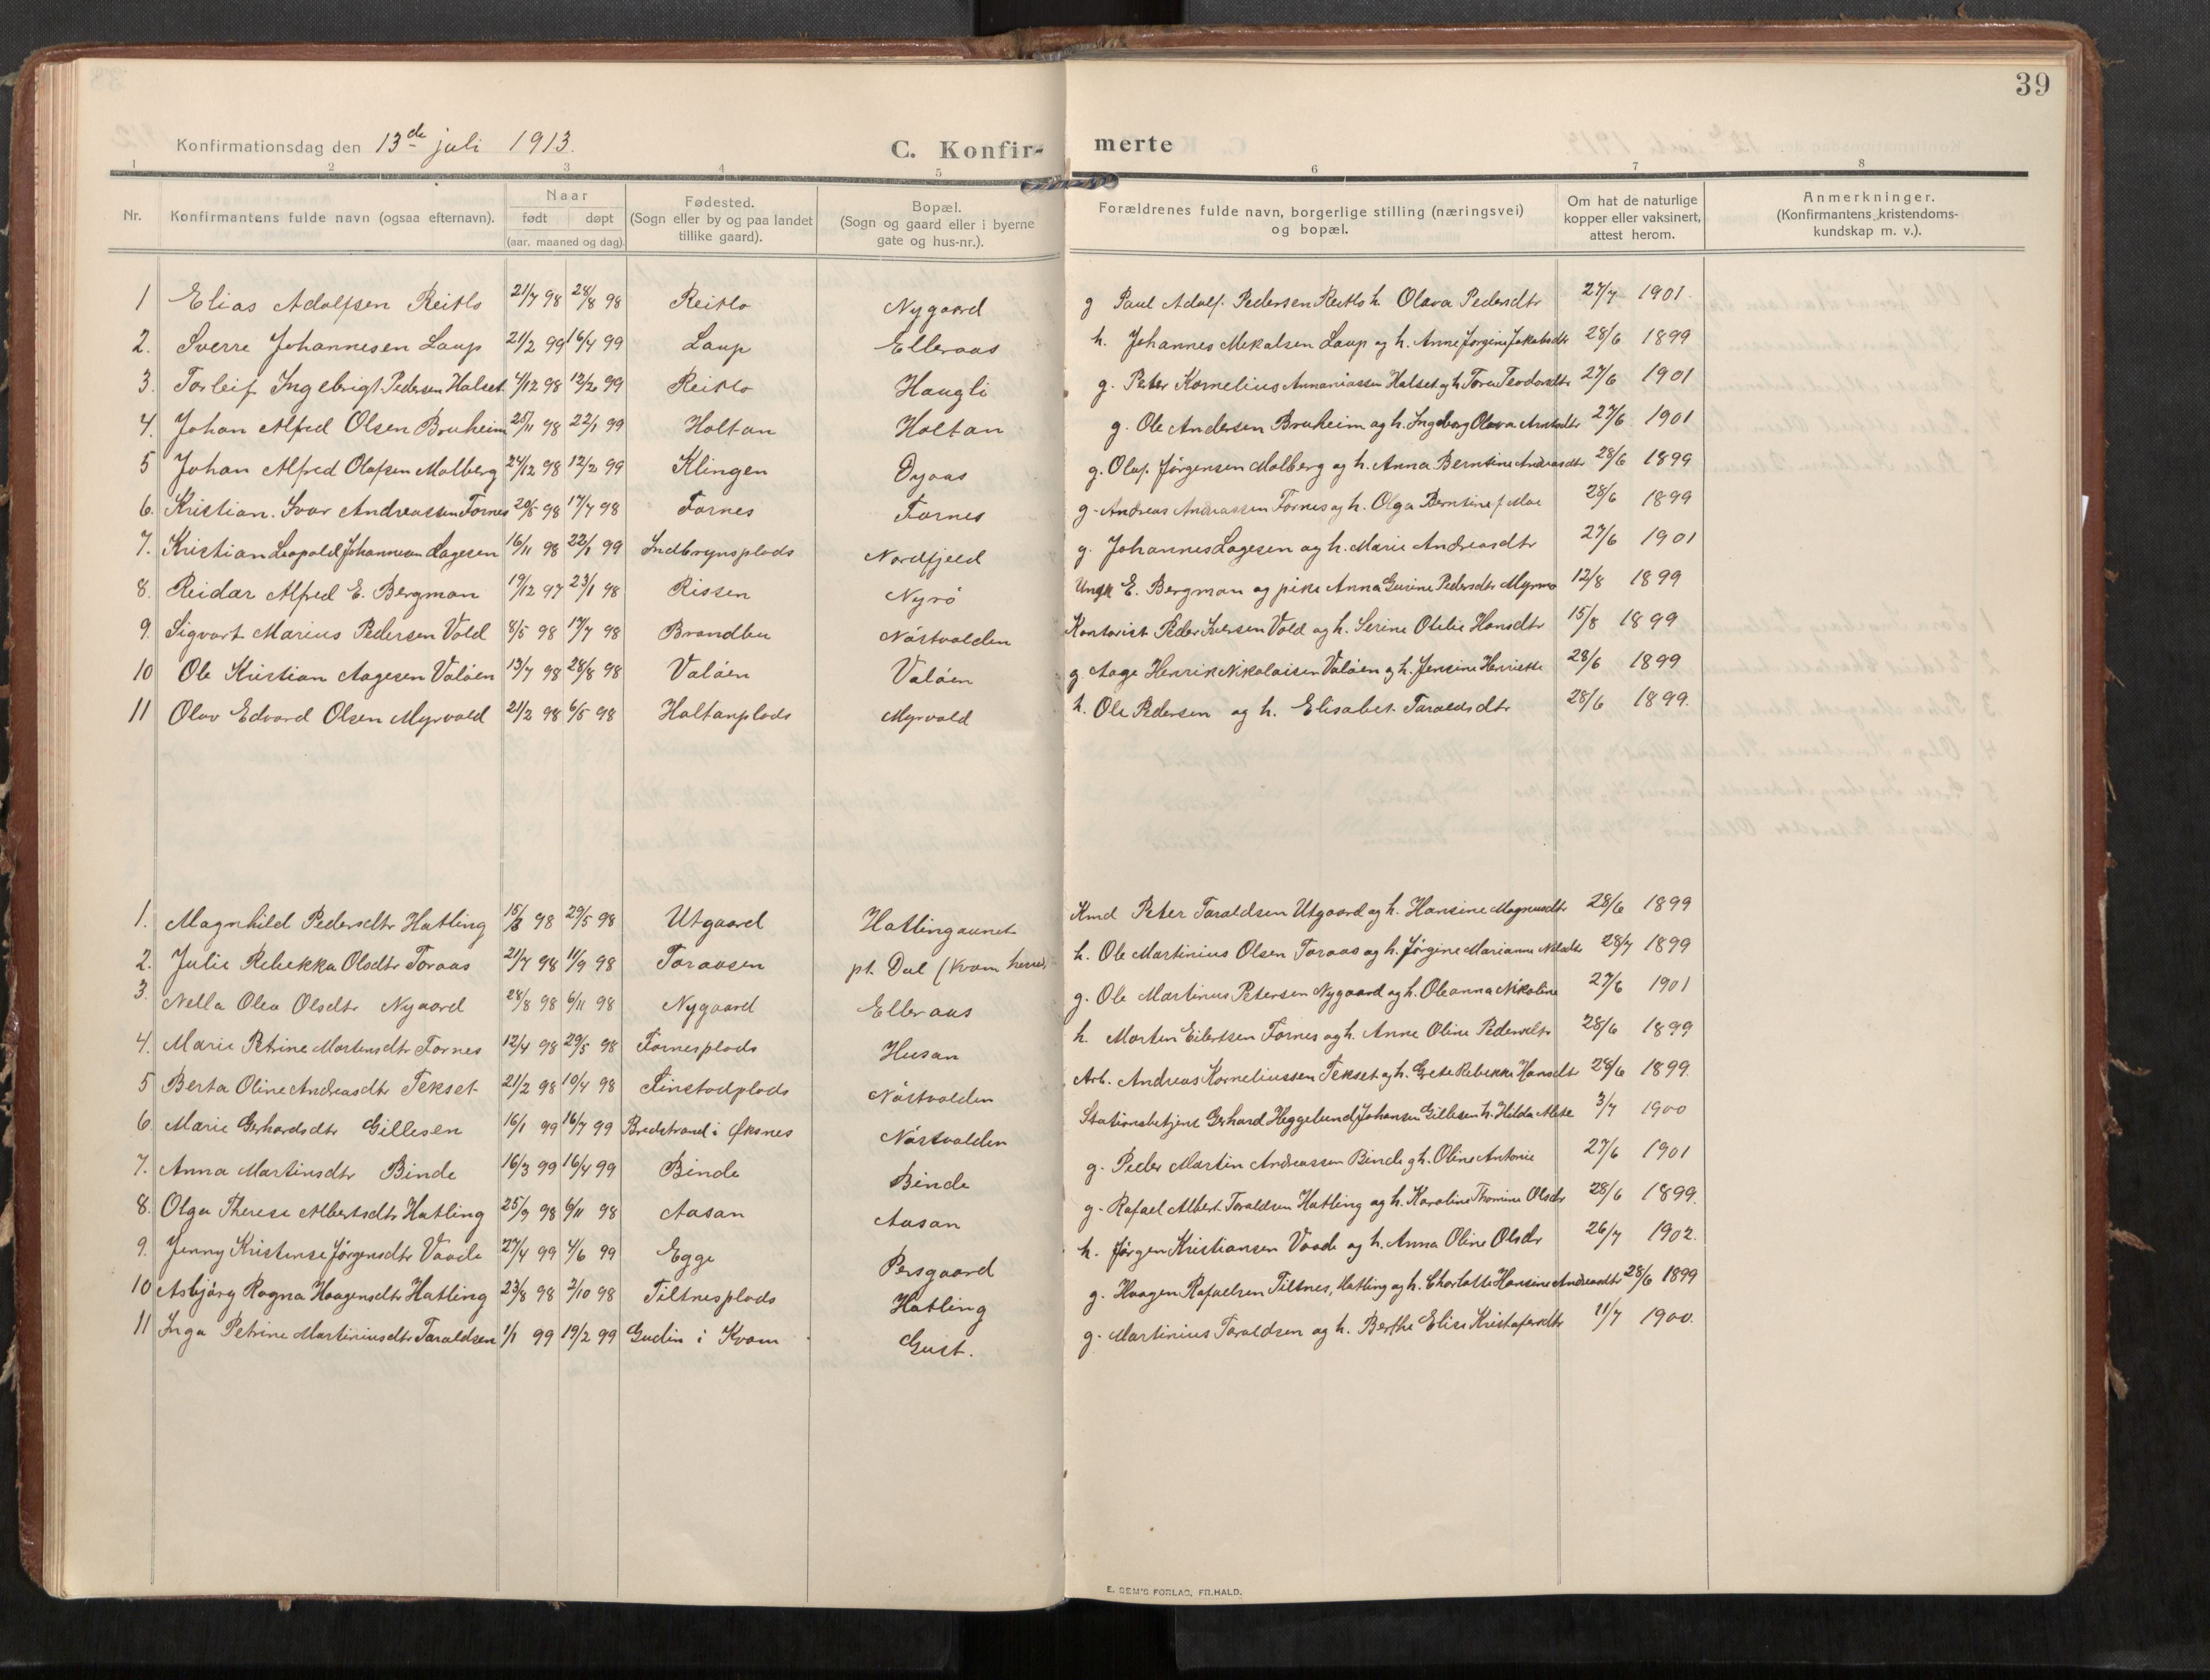 39
Konfirmationsdag den 13de juli 1913.
C. Konfir- merte
1 2 3 4 5 6 7 8
Nr. Konfirmantens fulde navn (ogsaa efternavn). Naar født døpt (aar, maaned og dag). Fødested. (Sogn eller by og paa landet tillike gaard). Bopæl. (Sogn og gaard eller i byerne gate og hus-nr.). Forældrenes fulde navn, borgerlige stilling (næringsvei) og bopæl. Om hat de naturlige kopper eller vaksinert, attest herom. Anmerkninger. (Konfirmantens kristendoms- kundskap m. v.).
1 Elias Adolfsen Reitlo 21/7 98 28/8 98 Reitlo Nygaard g Paul Adolf Pedersen Reitlo h. Olava Pedersdtr 27/7 1901.
2. Sverre Johannesen Laup 21/2 99 16/4 99 Laup Elleraas h. Johannes Mikalsen Laup og h. Anne Jørgine Jakobsdtr 28/6 1899
3. Torleif Ingebrigt Pedersen Halset 4/12 98 12/2 99 Reitlo Haugli g. Peter Kornelius Annaniassen Halset og h. Teodorsdtr 27/6 1901
4. Johan Alfred Olsen Bruheim 25/11 98 22/1 99 Holtan Holtan g. Ole Andersen Bruheim og h. Ingeborg Olava Arntsdtr 27/6 1901
5 Johan Alfred Olafsen Molberg 24/12 98 12/2 99 Klingen Dyaas g. Olaf Jørgensen Molberg og h. Anna Berntine Andreasdtr 28/6 1899
6. Kristian Ivar Andreassen Fornes 20/5 98 17/7 98 Fornes Fornes g. Andreas Andreassen Fornes og h. Olga Berntine f. Moe 28/6 1899
7. Kristian Leopold Johannesen Lagesen 16/11 98 22/1 99 Indbrynsplads Nordfjeld g. Johannes Lagesen og h. Marie Andreasdtr 27/6 1901
8. Reidar Alfred E. Bergman 19/12 97 23/1 98 Rissen Nyrö Ungk E. Bergman og pike Anna Gurine Pedersdtr Myrmo 12/8 1899
9. Sigvart Marius Pedersen Vold 8/5 98 17/7 98 Brandbu Nástvolden Kontorist Peder Iversen Vold og h. Serine Otelie Hansdtr 15/8 1899
10 Ole Kristian Aagesen Valöen 13/7 98 28/8 98 Valöen Valöen g. Aage Henrik Nikolaisen Valöen og h. Jensine Henriette 28/6 1899
11 Olav Edvard Olsen Myrvold 21/2 98 6/5 98 Holtanplads Myrvold h. Ole Pedersen og h. Elisabet Taraldsdtr 28/6 1899.
1. Magnhild Pedersdtr Hatling 98 29/5 98 Utgaard Hatlingaunet Kmd Peter Taraldsen Utgaard og h. Hansine Magnusdtr 28/6 1899
2. Julie Rebekka Olsdtr Toraas 21/7 98 11/9 98 Toraasen pt. Dal (Kvam herred) h. Ole Martinius Olsen Toraas og h. Jørgine Marianne Nilsdtr 28/7 1899
3. Nella Olea Olsdtr Nygaard 28/8 98 6/11 98 Nygaard Elleraas g. Ole Martinus Petersen Nygaard og h. Oleanna Nikoline 27/6 1901
4. Marie Petrine Martensdtr Fornes 12/4 98 29/5 98 Fornesplads Husan h. Morten Eilertsen Fornes og h. Anne Oline Pedersdtr 28/6 1899
5 Berta Oline Andreasdtr Tekset 21/2 98 10/4 98 Finstadplads Nástvolden Arb. Andreas Korneliussen Tekset og h. Grete Rebekke Hansdtr 28/6 1899.
6. Marie Gerhardsdtr Gillesen 16/1 99 16/7 99 Bredstrand i Øksnes Nástvolden Stationsbetjent Gerhard Heggelund Johansen Gillesen h. Hilda Mete 3/7 1900
7. Anna Martinsdtr Binde 16/3 99 16/4 99 Binde Binde g. Peder Martin Andreassen Binde g h. Oline Antonie 27/6 1901
8. Olga Therese Albertsdtr Hatling 25/9 98 6/11 98 Aasan Aasan g. Rafael Albert Taraldsen Hatling og h. Karoline Thomine Olsdr 28/6 1899.
9. Jenny Kristense Jørgensdtr Vaade 27/4 99 4/6 99 Egge Persgaard h. Jørgen Kristiansen Vaade og h. Anna Oline Olsdr 26/7 1902.
10 Asbjørg Ragna Haagensdtr Hatling 23/8 98 2/10 98 Tiltnesplads Hatling g. Haagen Rafaelsen Tiltnes, Hatling og h. Charlotte Hansine Andreasdtr 28/6 1899
11 Inga Petrine Martiniusdtr Taraldsen 1/1 99 19/2 99 Gudin i Kvam Gust. g. Martinius Taraldsen og h. Berthe Elise Kristofersdtr 11/7 1900.
E. SEM'S FORLAG, FR.HALD.